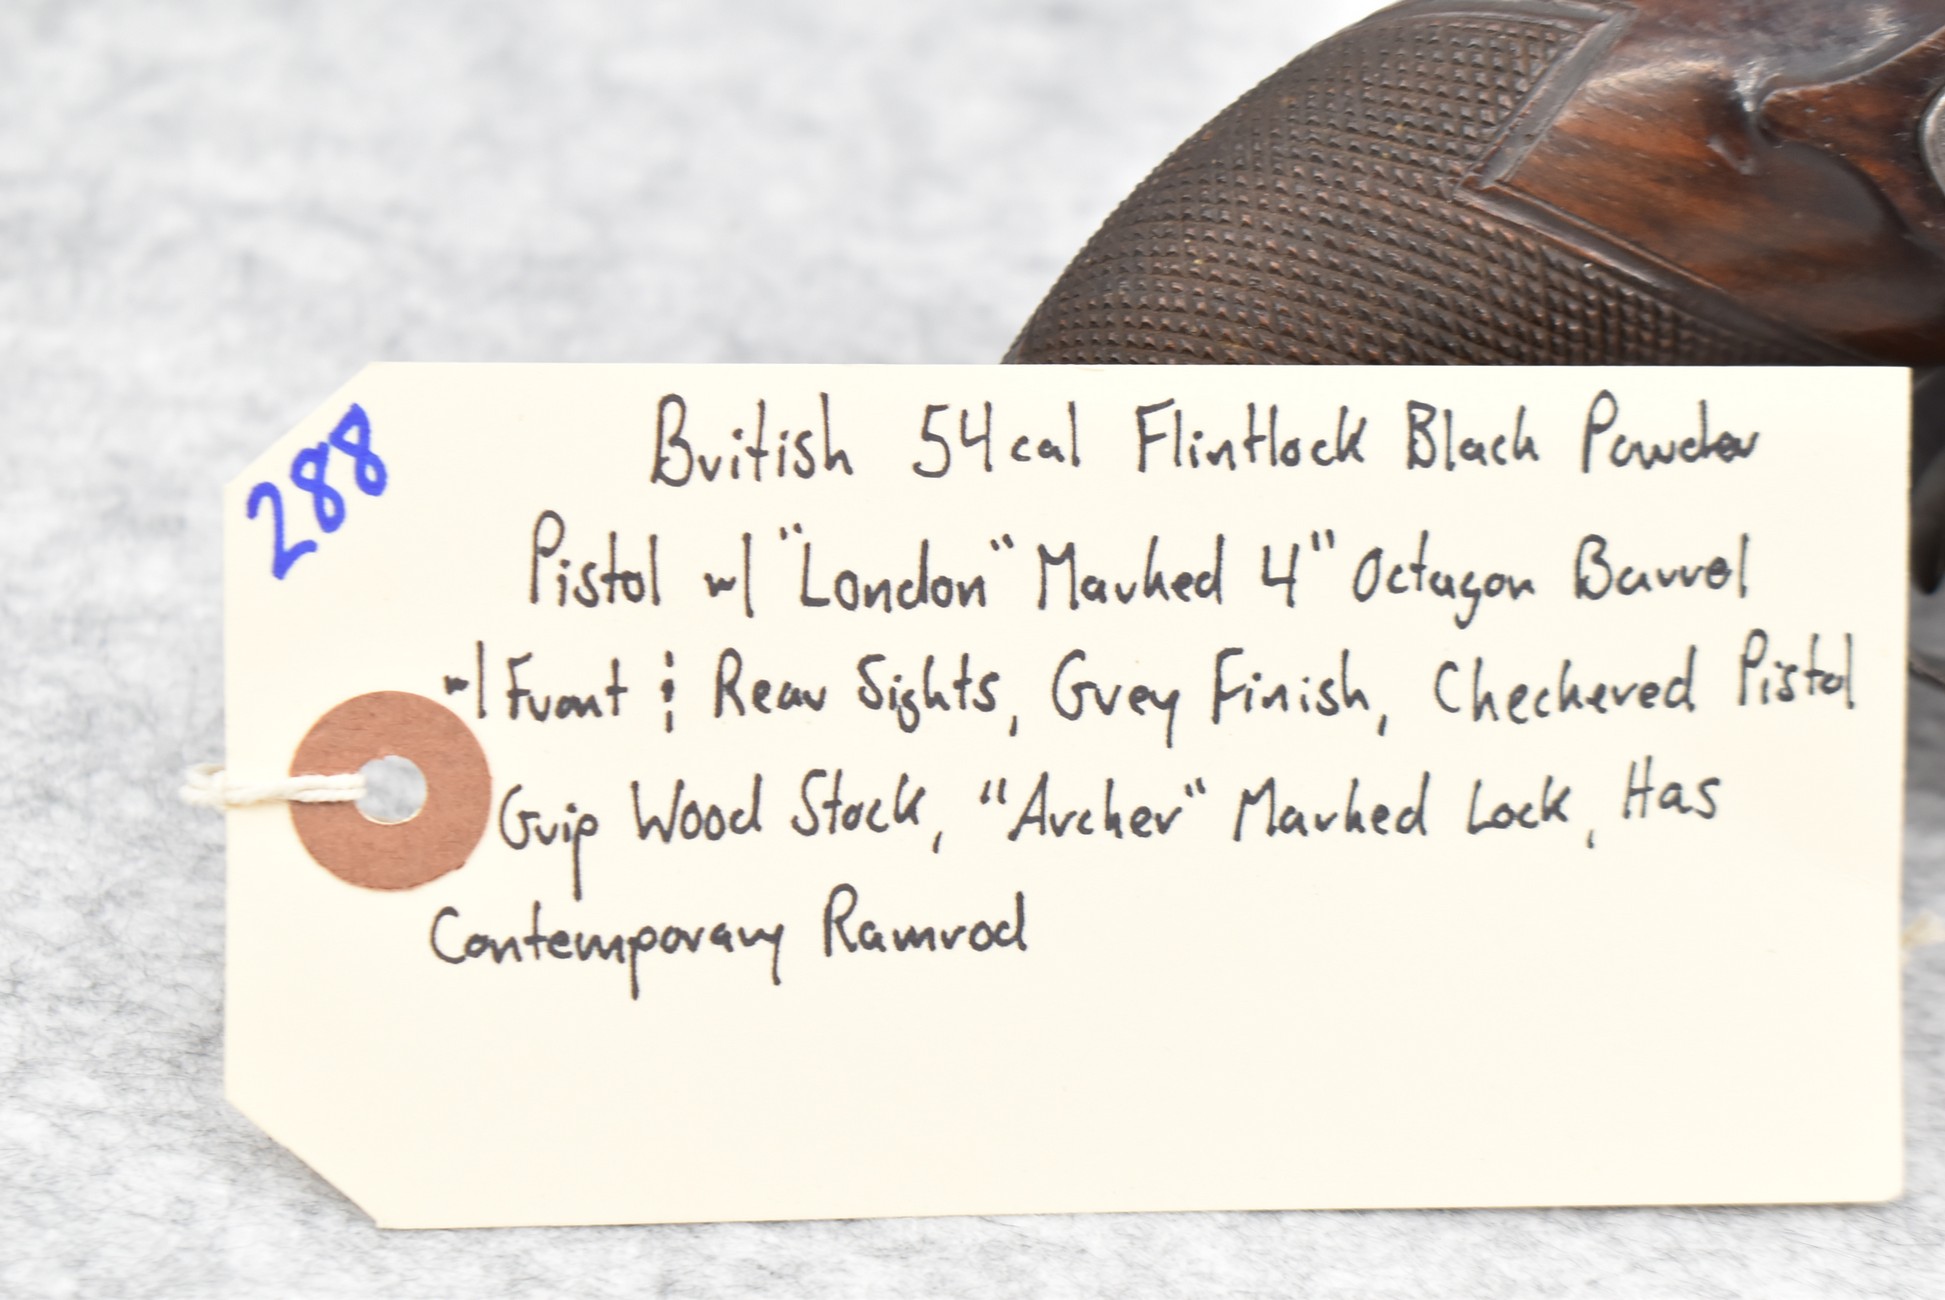 288
British 54cal Flintlock Black Powder
Pistol w/ "London" Marked 4" Octagon Barrel
w/ Front & Rear Sights, Grey Finish, Checkered Pistol
Grip Wood Stock, "Archer" Marked Lock, Has
Contemporary Ramrod